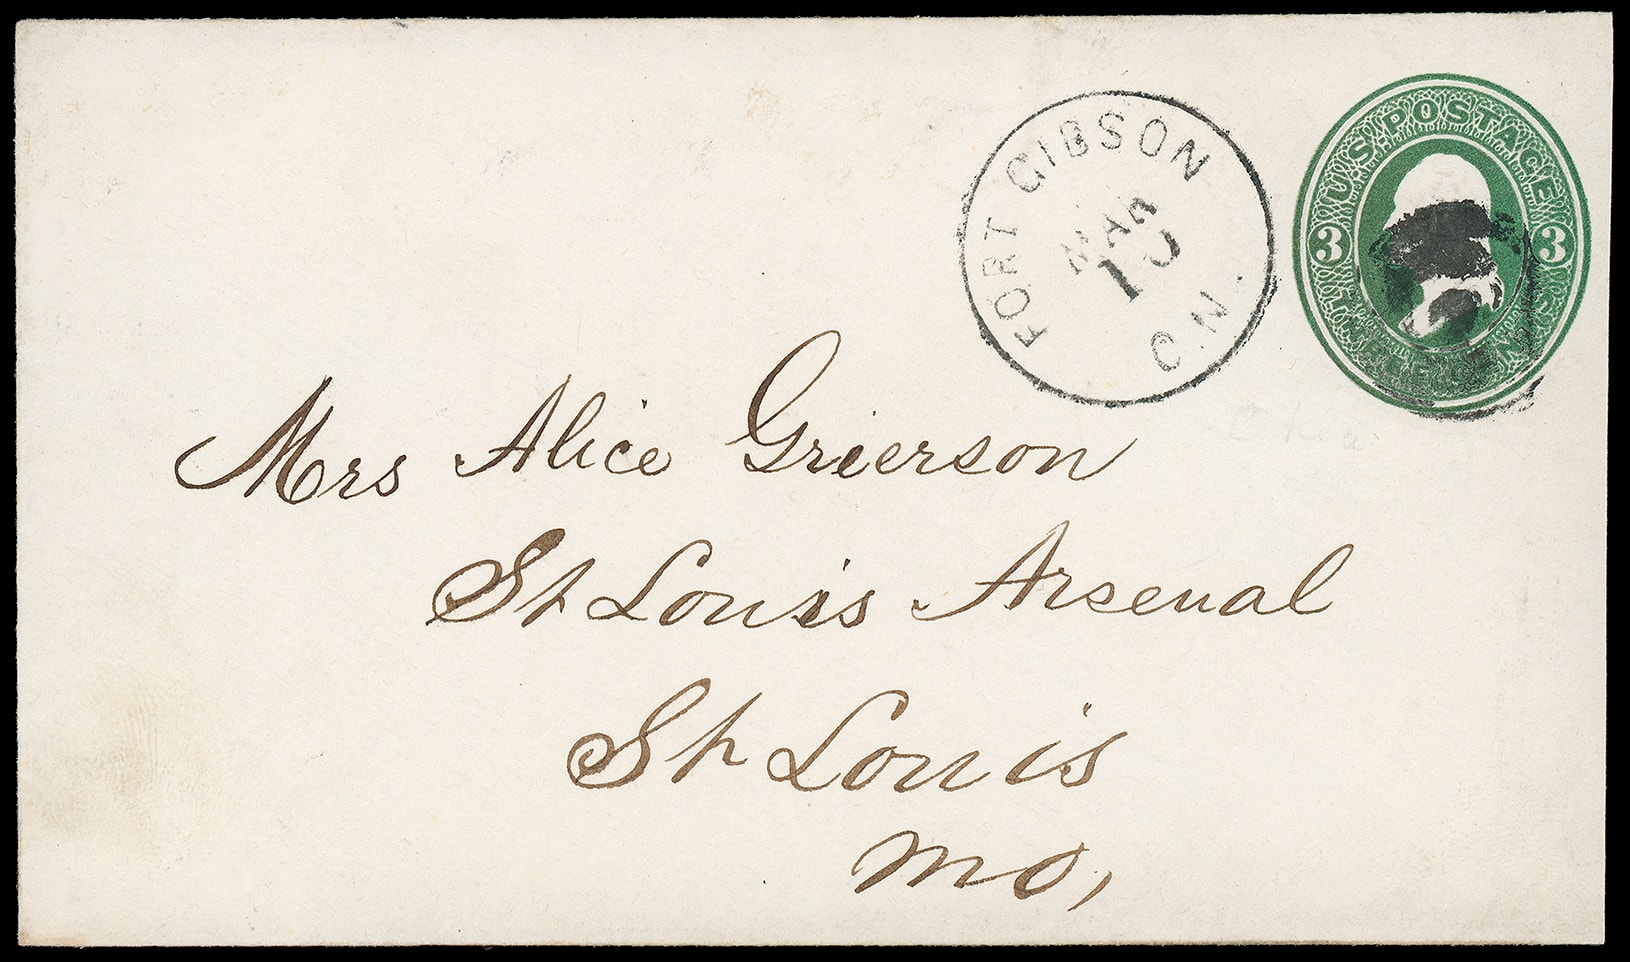 FORT GIBSON
MAR
C.N.
U.S. POSTAGE
3 3
THREE CENTS
Mrs Alice Grierson
St Louis Arsenal
St Louis
Mo,